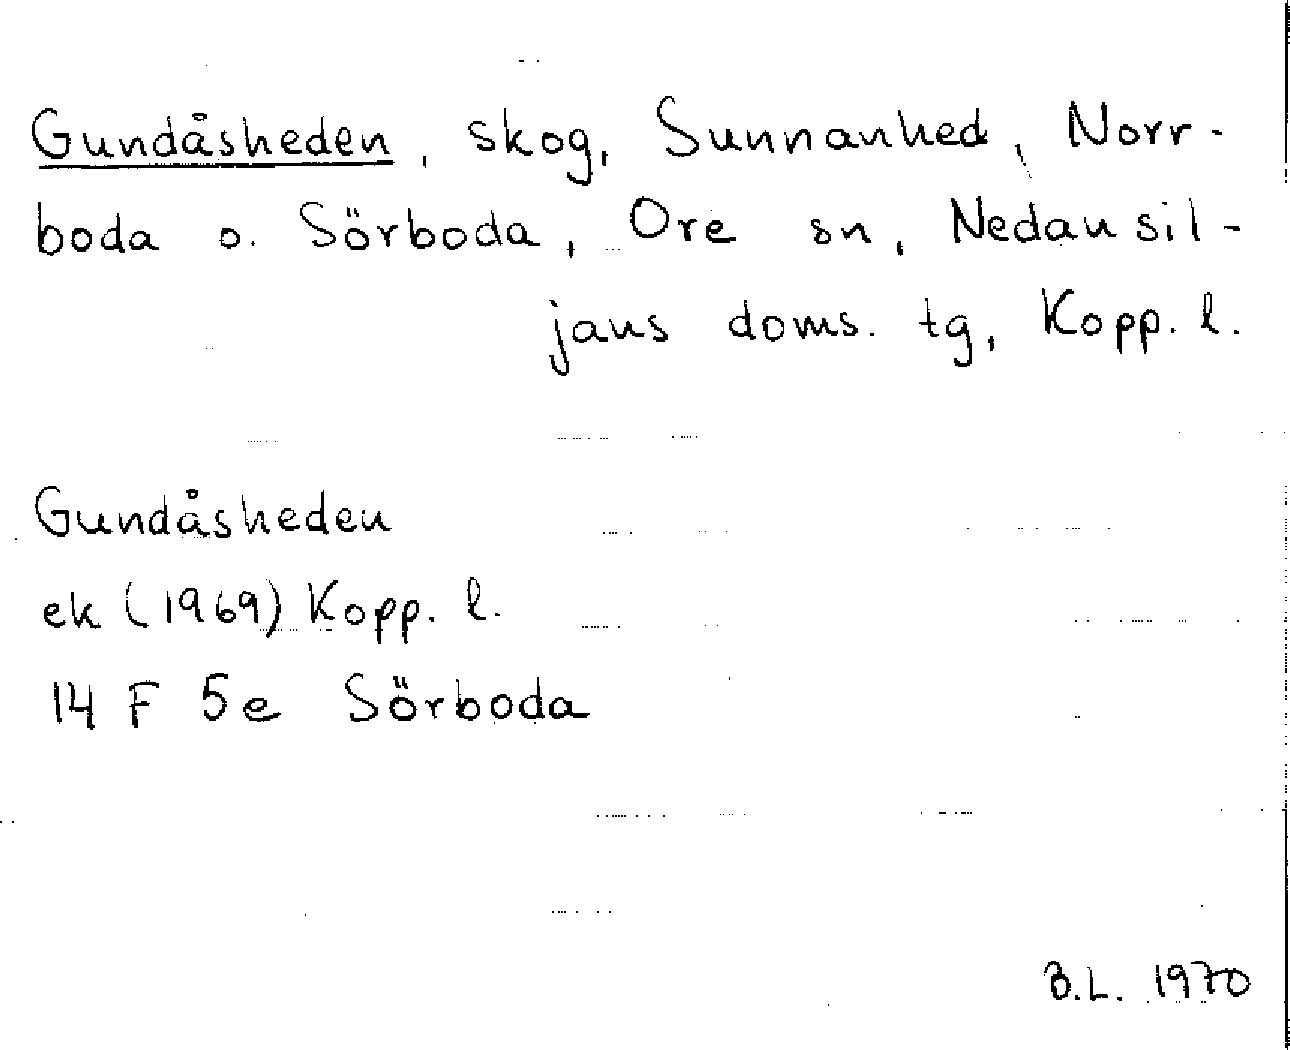 Gundåsheden, skog, Sunnanhed, Norr-
boda o. Sörboda, Ore sn, Nedansil-
jans doms. tg, Kopp. l.
Gundåsheden
ek (1969) Kopp. l.
14 F 5e Sörboda
B.L. 1970